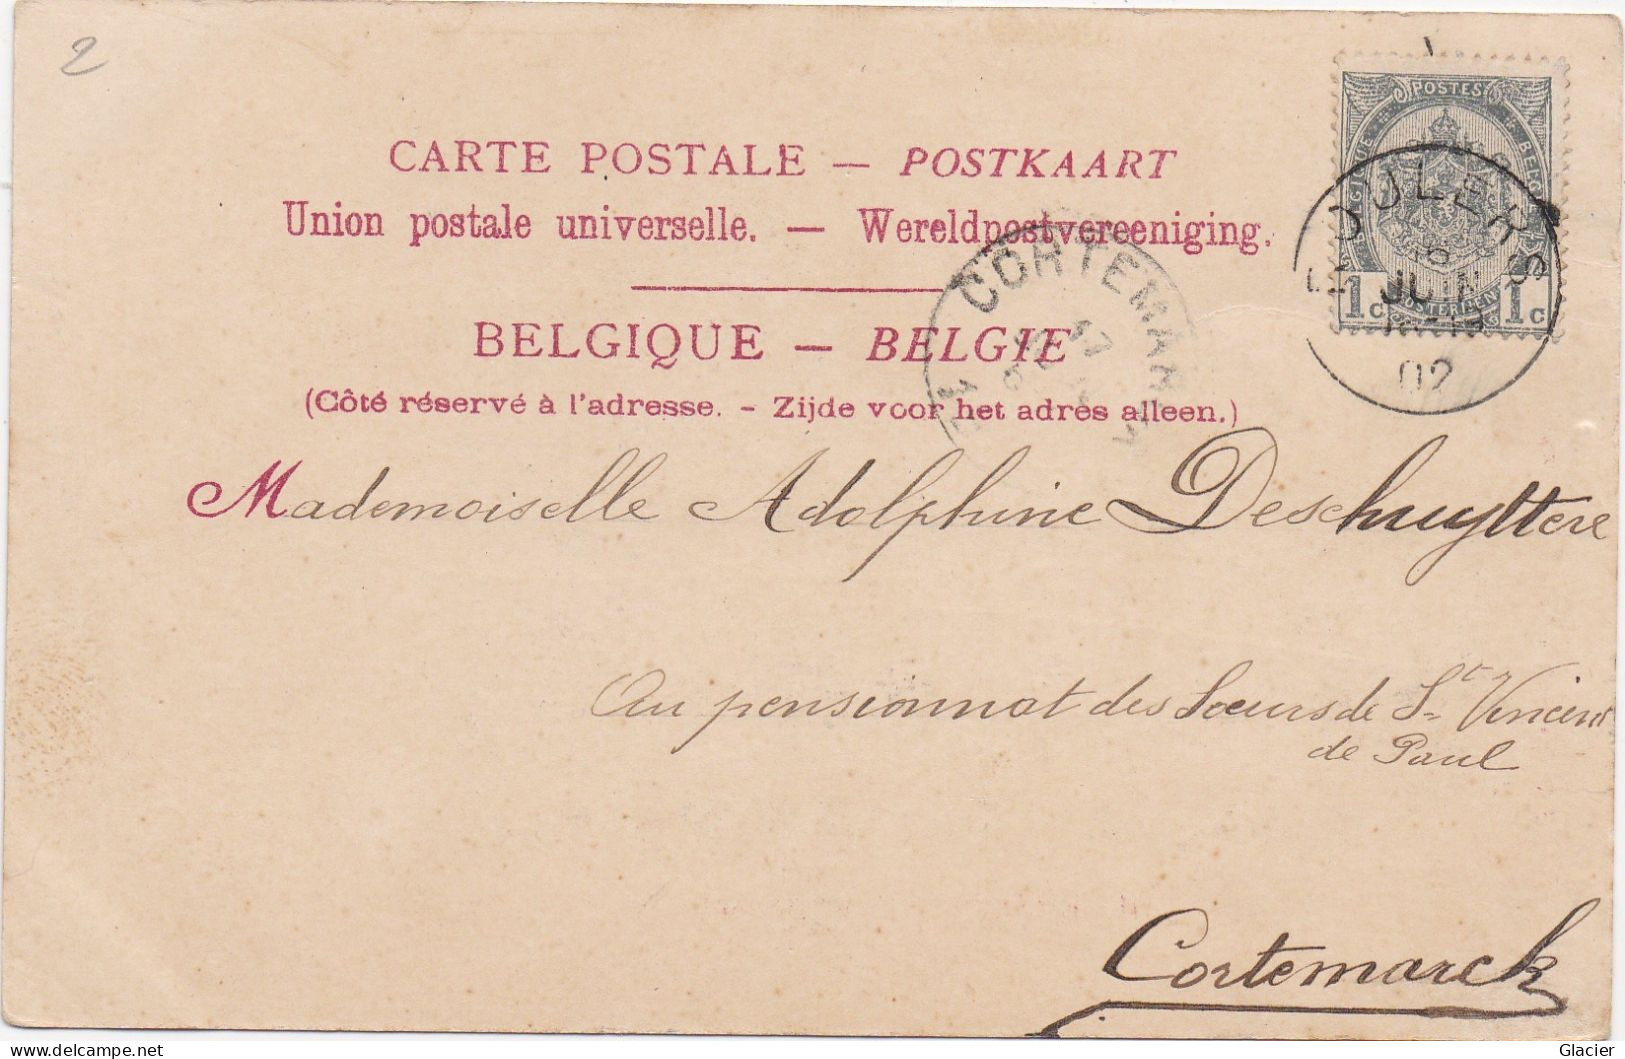 2
CARTE POSTALE — POSTKAART
Union postale universelle. — Wereldpostvereeniging.
BELGIQUE — BELGIE
(Côté réservé à l'adresse. - Zijde voor het adres alleen.)
POSTES
1c 1c
ROULERS
16
JUIN
02
CORTEMARCK
17
Mademoiselle Adolphine Deschuyttere
Au pensionnat des Sœurs de St Vincent
de Paul
Cortemarck
delcampe.net
Glacier